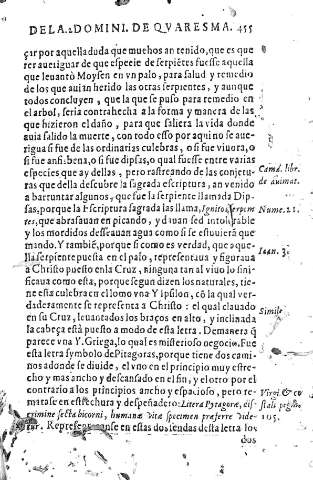 DE LA .2. DOMINI. DE QVARESMA. 455
çar por aquella duda que muchos an tenido, que es que
rer aueriguar de que especie de serpiētes fuesse aquella
que leuantò Moysen en vn palo, para salud y remedio
de los que auian herido las otras serpientes, y aunque
todos concluyen, que la que se puso para remedio en
el arbol, seria contrahecha a la forma y manera de las
que hizieron el daño, para que saliera la vida donde
auia salido la muerte, con todo esso por aqui no se aue-
rigua si fue de las ordinarias culebras, o si fue viuora, o
si fue anfisbena, o si fue dipsas, o qual fuesse entre varias
especies que ay dellas, pero rastreando de las conjetu-
ras que della descubre la sagrada escriptura, an venido
a barruntar algunos, que fue la serpiente llamada Dip-
sas, porque la Escriptura sagrada las llama, Ignitos serpen
tes, que abrasauan en picando, y dauan sed intolerable
y los mordidos desseauan agua como si se estuvierā que
mando. Y tambiē, porque si como es verdad, que aque-
lla serpiente puesta en el palo, representaua y figuraua
a Christo puesto en la Cruz, ninguna tan al viuo lo sini-
ficaua como esta, porque segun dizen los naturales, tie-
ne esta culebra en el lomo vna Y ipsilon, cō la qual ver-
daderamente se representa a Christo: el qual clauado
en su Cruz, leuantados los braços en alto, y inclinada
la cabeça està puesto a modo de esta letra. De manera q̄
parece vna Y. Griega, lo qual es misterioso negocio. Fue
esta letra symbolo de Pitagoras, porque tiene dos cami-
nos adonde se diuide, el vno en el principio muy estre-
cho y mas ancho y descansado en el fin, y el otro por el
contrario a los principios ancho y espacioso, pero re-
mata se en estrechura y despeñadero: Litera Pytagoræ, dis-
crimine secta bicorni, humanæ vitæ specimen præferre vide-
tur. Representanse en estas dos sendas desta letra los
dos
Cand. libr.
de animat.
Nume. 21.
Ioan. 3.
Simile